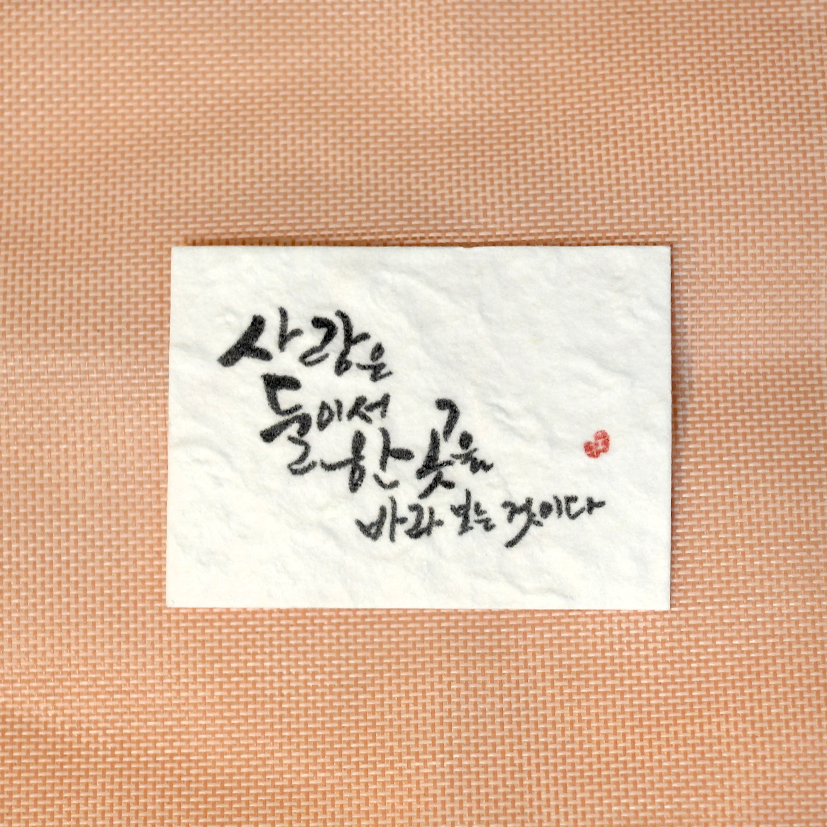 사랑은
둘이서
한 곳을
바라보는 것이다